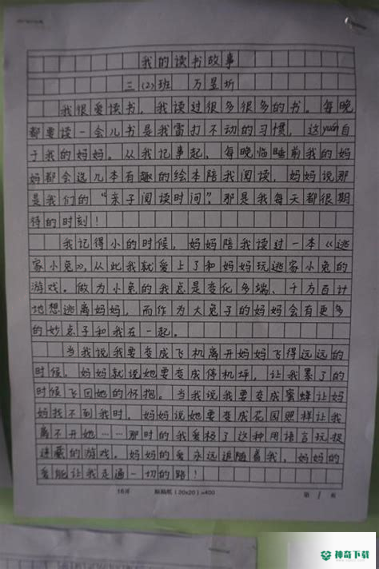 我的读书故事
三(2)班 万昱圻
我很爱读书,我读过很多很多的书。每晚
都要读一会儿书是我雷打不动的习惯,这yuán自
于我的妈妈。从我记事起,每晚临睡前我的妈
妈都会选几本有趣的绘本陪我阅读,妈妈说那
是我们的“亲子阅读时间”那是我每天都很期
待的时刻!
我记得小的时候,妈妈陪我读过一本《逃
家小兔》,从此我就爱上了和妈妈玩逃家小兔的
游戏。做为小兔的我总是变化多端、千方百计
地想逃离妈妈,而作为大兔子的妈妈会有更多
的妙点子和我在一起。
当我说我要变成飞机离开妈妈飞得远远的
时候,妈妈就说她要变成停机坪,让我累了的
时候飞回她的怀抱。当我说我要变成蜜蜂让妈
妈找不到我时,妈妈说她要变成花园照样让我
离不开她……那时的我爱极了这种用语言玩捉
迷藏的游戏。妈妈的爱永远追随着我,妈妈的
爱能让我走遍一切的路!
稿纸(20×20)=400
第 1 页
神奇下载